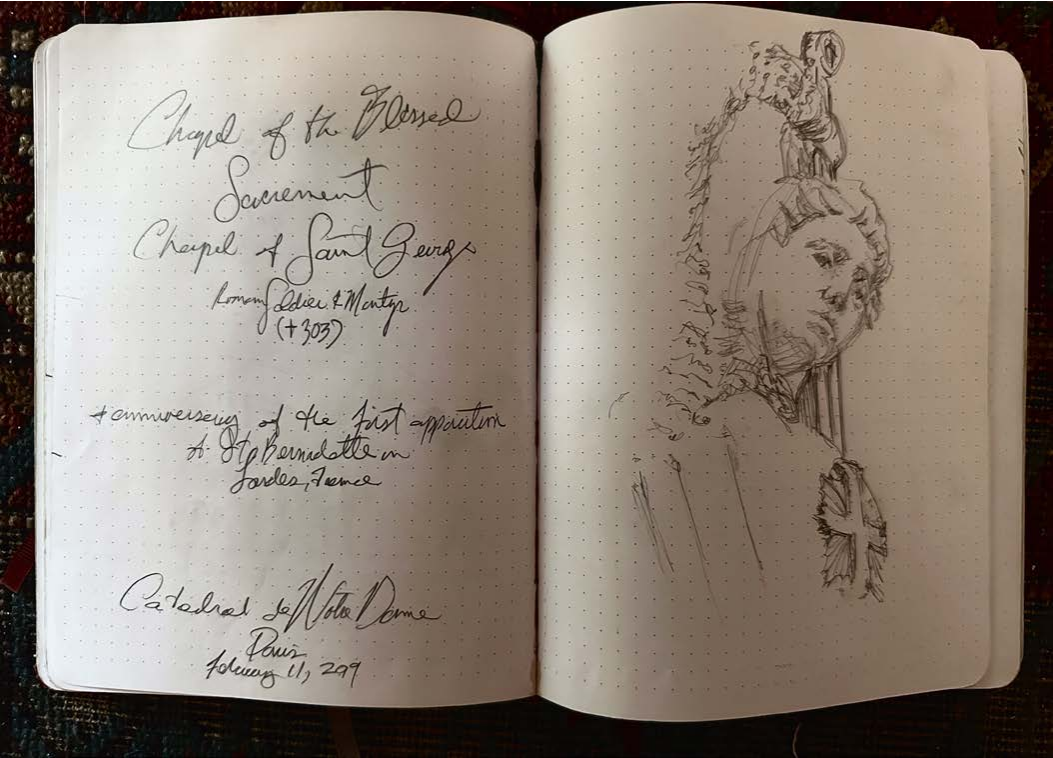 Chapel of the Blessed
Sacrement
Chapel of Saint George
Roman Soldier & Martyr
(+303)
+ anniversary of the first apparition
St. Bernadette in
Lordes, France
Catedral de Notre Dame
Paris
February 11,